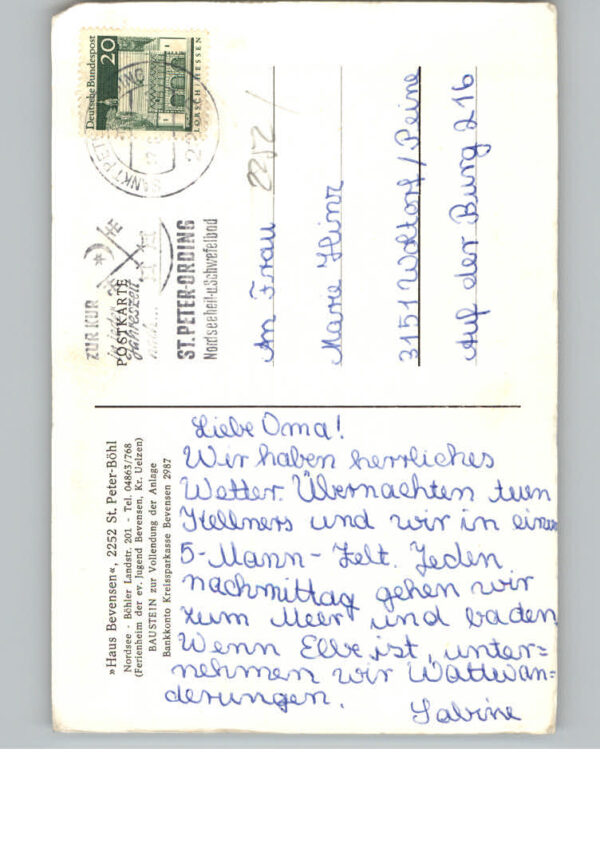 Deutsche Bundespost
20
LORSCH/HESSEN
ZUR KUR
in jeder
Jahreszeit
POSTKARTE
ST. PETER-ORDING
Nordseeheil-u.Schwefelbad
2252
An Frau
Marie Hinz
3151 Woltorf/Peine
Auf der Burg 216
»Haus Bevensen«, 2252 St. Peter-Böhl
Nordsee · Böhler Landstr. 201 · Tel. 04863/768
(Ferienheim der ev. Jugend Bevensen, Kr. Uelzen)
BAUSTEIN zur Vollendung der Anlage
Bankkonto Kreissparkasse Bevensen 2987
Liebe Oma!
Wir haben herrliches
Wetter. Übernachten tuen
Kellners und wir in einem
5-Mann-Zelt. Jeden
nachmittag gehen wir
zum Meer und baden
Wenn Ebbe ist, unter=
nehmen wir Wattwan=
derungen.
Sabine